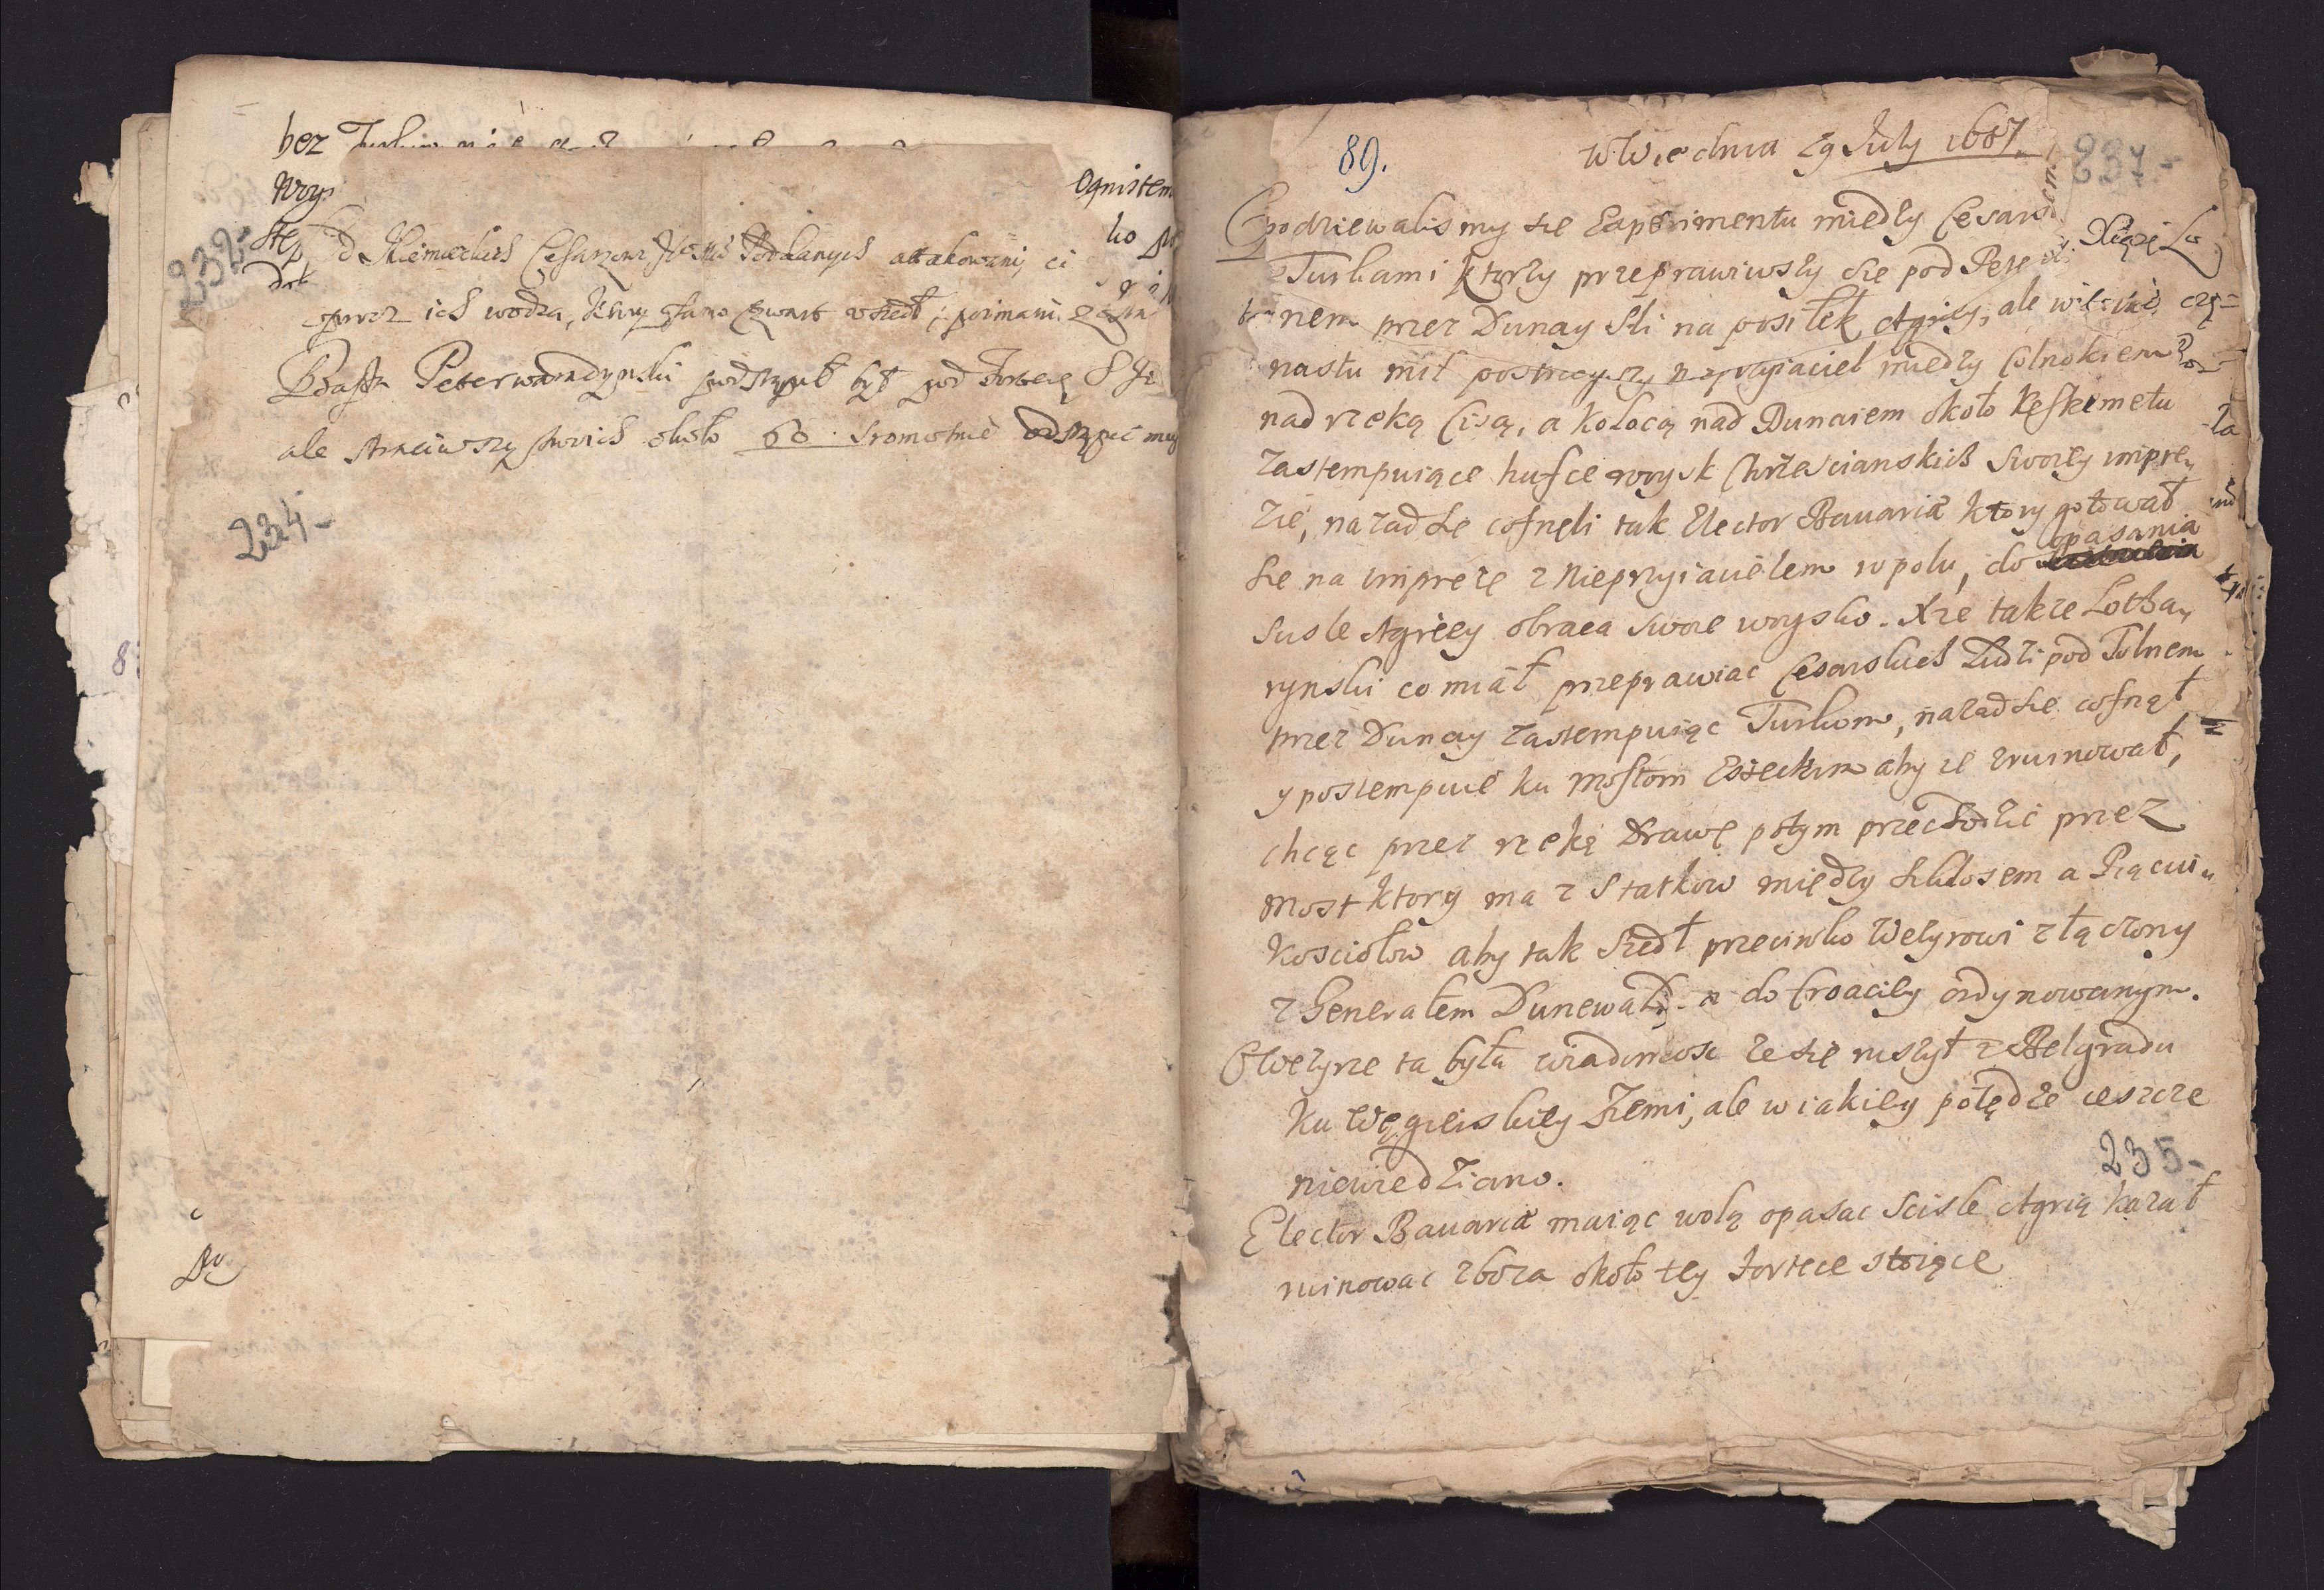 bez
Ognistem
232-
od Niemieckich attakowani, ci
oprocz ich wodza, poimani
Bassa Peterwaradynski podstąpił był pod Fortecę
ale straciwszy swoich około 60. sromotnie odstąpić
234-
89.
w Wiedniu 29 July 1687.
237-
Spodziewalismy sie Experimentu miedzy Cesars
z Turkami ktorzy przeprawiwszy sie pod Pete
Xiążę Lo
nem przez Dunay szli na posiłek Agriey, ale
nastu mil postrzegszy nieprzyiaciel miedzy Colnokiem
nad rzeką Cisą, a Kolocą nad Dunaiem około Keskemetu
zastempuiące hufce woysk Chrzescianskich swoiey impre,
zie, nazad sie cofneli tak Elector Bauariæ ktory gotował
sie na impreze z Nieprzyiacielem w polu, do opasania
susle Agriey obraca swoie woysko. Xże także Lotha,
rynski co miał przeprawiac Cesarskich Ludzi pod Tolnem
przez Dunay zastempuiąc Turkom, nazad sie cofnął
y postempuie ku mostom Esseckim aby ie zruinował,
chcąc przez rzekę Drawę potym przechodzic przez
most ktory ma z Statkow między Siklosem a Piąciu
Kosciołow aby tak szedł przeciwko Wezyrowi złączony
z Generałem Dunewald- do Croaciey ordynowanym.
O Wezyrze ta była wiadomosc ze się ruszył z Belgradu
ku Węgierskiey Ziemi, ale w iakiey potędze ieszcze
niewiedziano.
235-
Elector Bauariæ maiąc wolą opasac scisle Agrią kazał
ruinowac zboza około tey Fortece stoiące